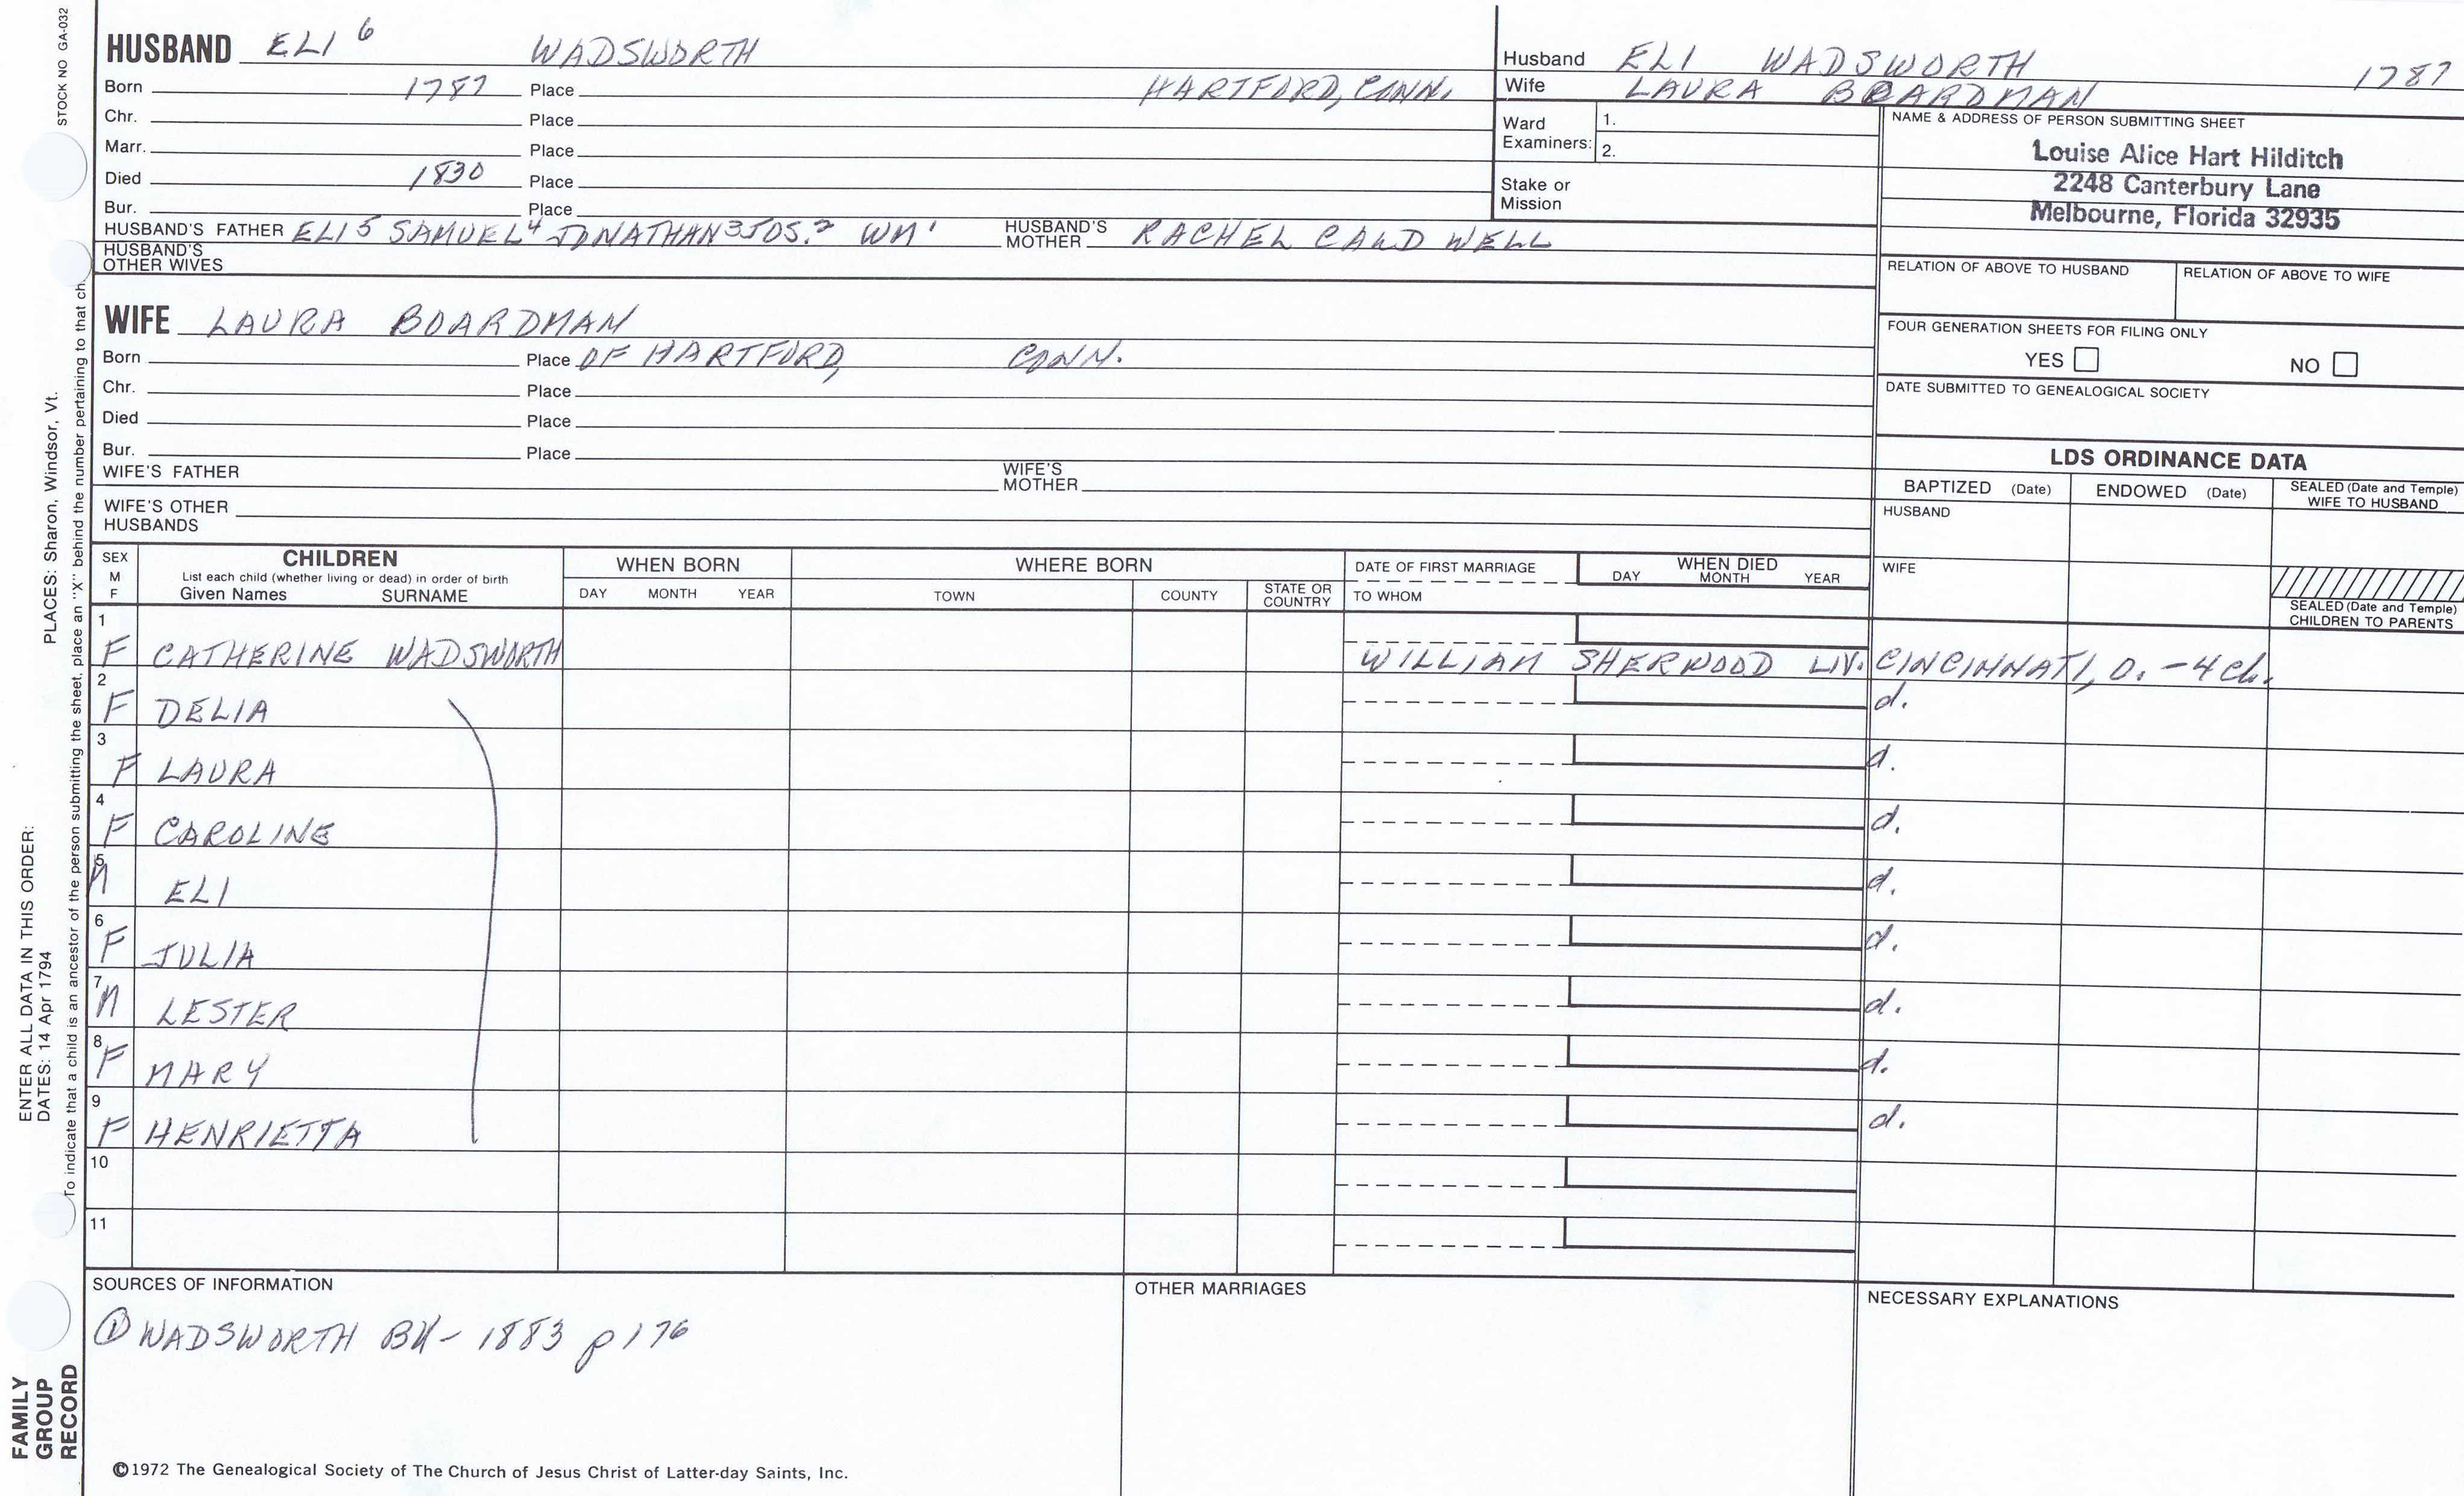 STOCK NO GA-032
HUSBAND ELI 6 WADSWORTH
Born 1787 Place HARTFORD, CONN.
Chr. Place
Marr. Place
Died 1830 Place
Bur. Place
HUSBAND'S FATHER ELI 5 SAMUEL 4 JONATHAN 3 JOS. 2 WM 1 HUSBAND'S MOTHER RACHEL CALDWELL
HUSBAND'S OTHER WIVES
WIFE LAURA BOARDMAN
Born Place OF HARTFORD, CONN.
Chr. Place
Died Place
Bur. Place
WIFE'S FATHER WIFE'S MOTHER
WIFE'S OTHER HUSBANDS
Husband ELI WADSWORTH 1787
Wife LAURA BOARDMAN
Ward Examiners: 1.
2.
Stake or Mission
NAME & ADDRESS OF PERSON SUBMITTING SHEET
Louise Alice Hart Hilditch
2248 Canterbury Lane
Melbourne, Florida 32935
RELATION OF ABOVE TO HUSBAND RELATION OF ABOVE TO WIFE
FOUR GENERATION SHEETS FOR FILING ONLY
YES NO
DATE SUBMITTED TO GENEALOGICAL SOCIETY
LDS ORDINANCE DATA
BAPTIZED (Date) ENDOWED (Date) SEALED (Date and Temple) WIFE TO HUSBAND
HUSBAND
WIFE
SEALED (Date and Temple) CHILDREN TO PARENTS
SEX M F
CHILDREN
List each child (whether living or dead) in order of birth
Given Names SURNAME
WHEN BORN
DAY MONTH YEAR
WHERE BORN
TOWN COUNTY STATE OR COUNTRY
DATE OF FIRST MARRIAGE
TO WHOM
WHEN DIED
DAY MONTH YEAR
1 F CATHERINE WADSWORTH WILLIAM SHERWOOD LIV. CINCINNATI, O. - 4 ch.
2 F DELIA d.
3 F LAURA d.
4 F CAROLINE d.
5 M ELI d.
6 F JULIA d.
7 M LESTER d.
8 F MARY d.
9 F HENRIETTA d.
10
11
SOURCES OF INFORMATION
① WADSWORTH BK - 1883 p 176
OTHER MARRIAGES
NECESSARY EXPLANATIONS
©1972 The Genealogical Society of The Church of Jesus Christ of Latter-day Saints, Inc.
FAMILY
GROUP
RECORD
ENTER ALL DATA IN THIS ORDER:
DATES: 14 Apr 1794
PLACES: Sharon, Windsor, Vt.
To indicate that a child is an ancestor of the person submitting the sheet, place an "X" behind the number pertaining to that ch